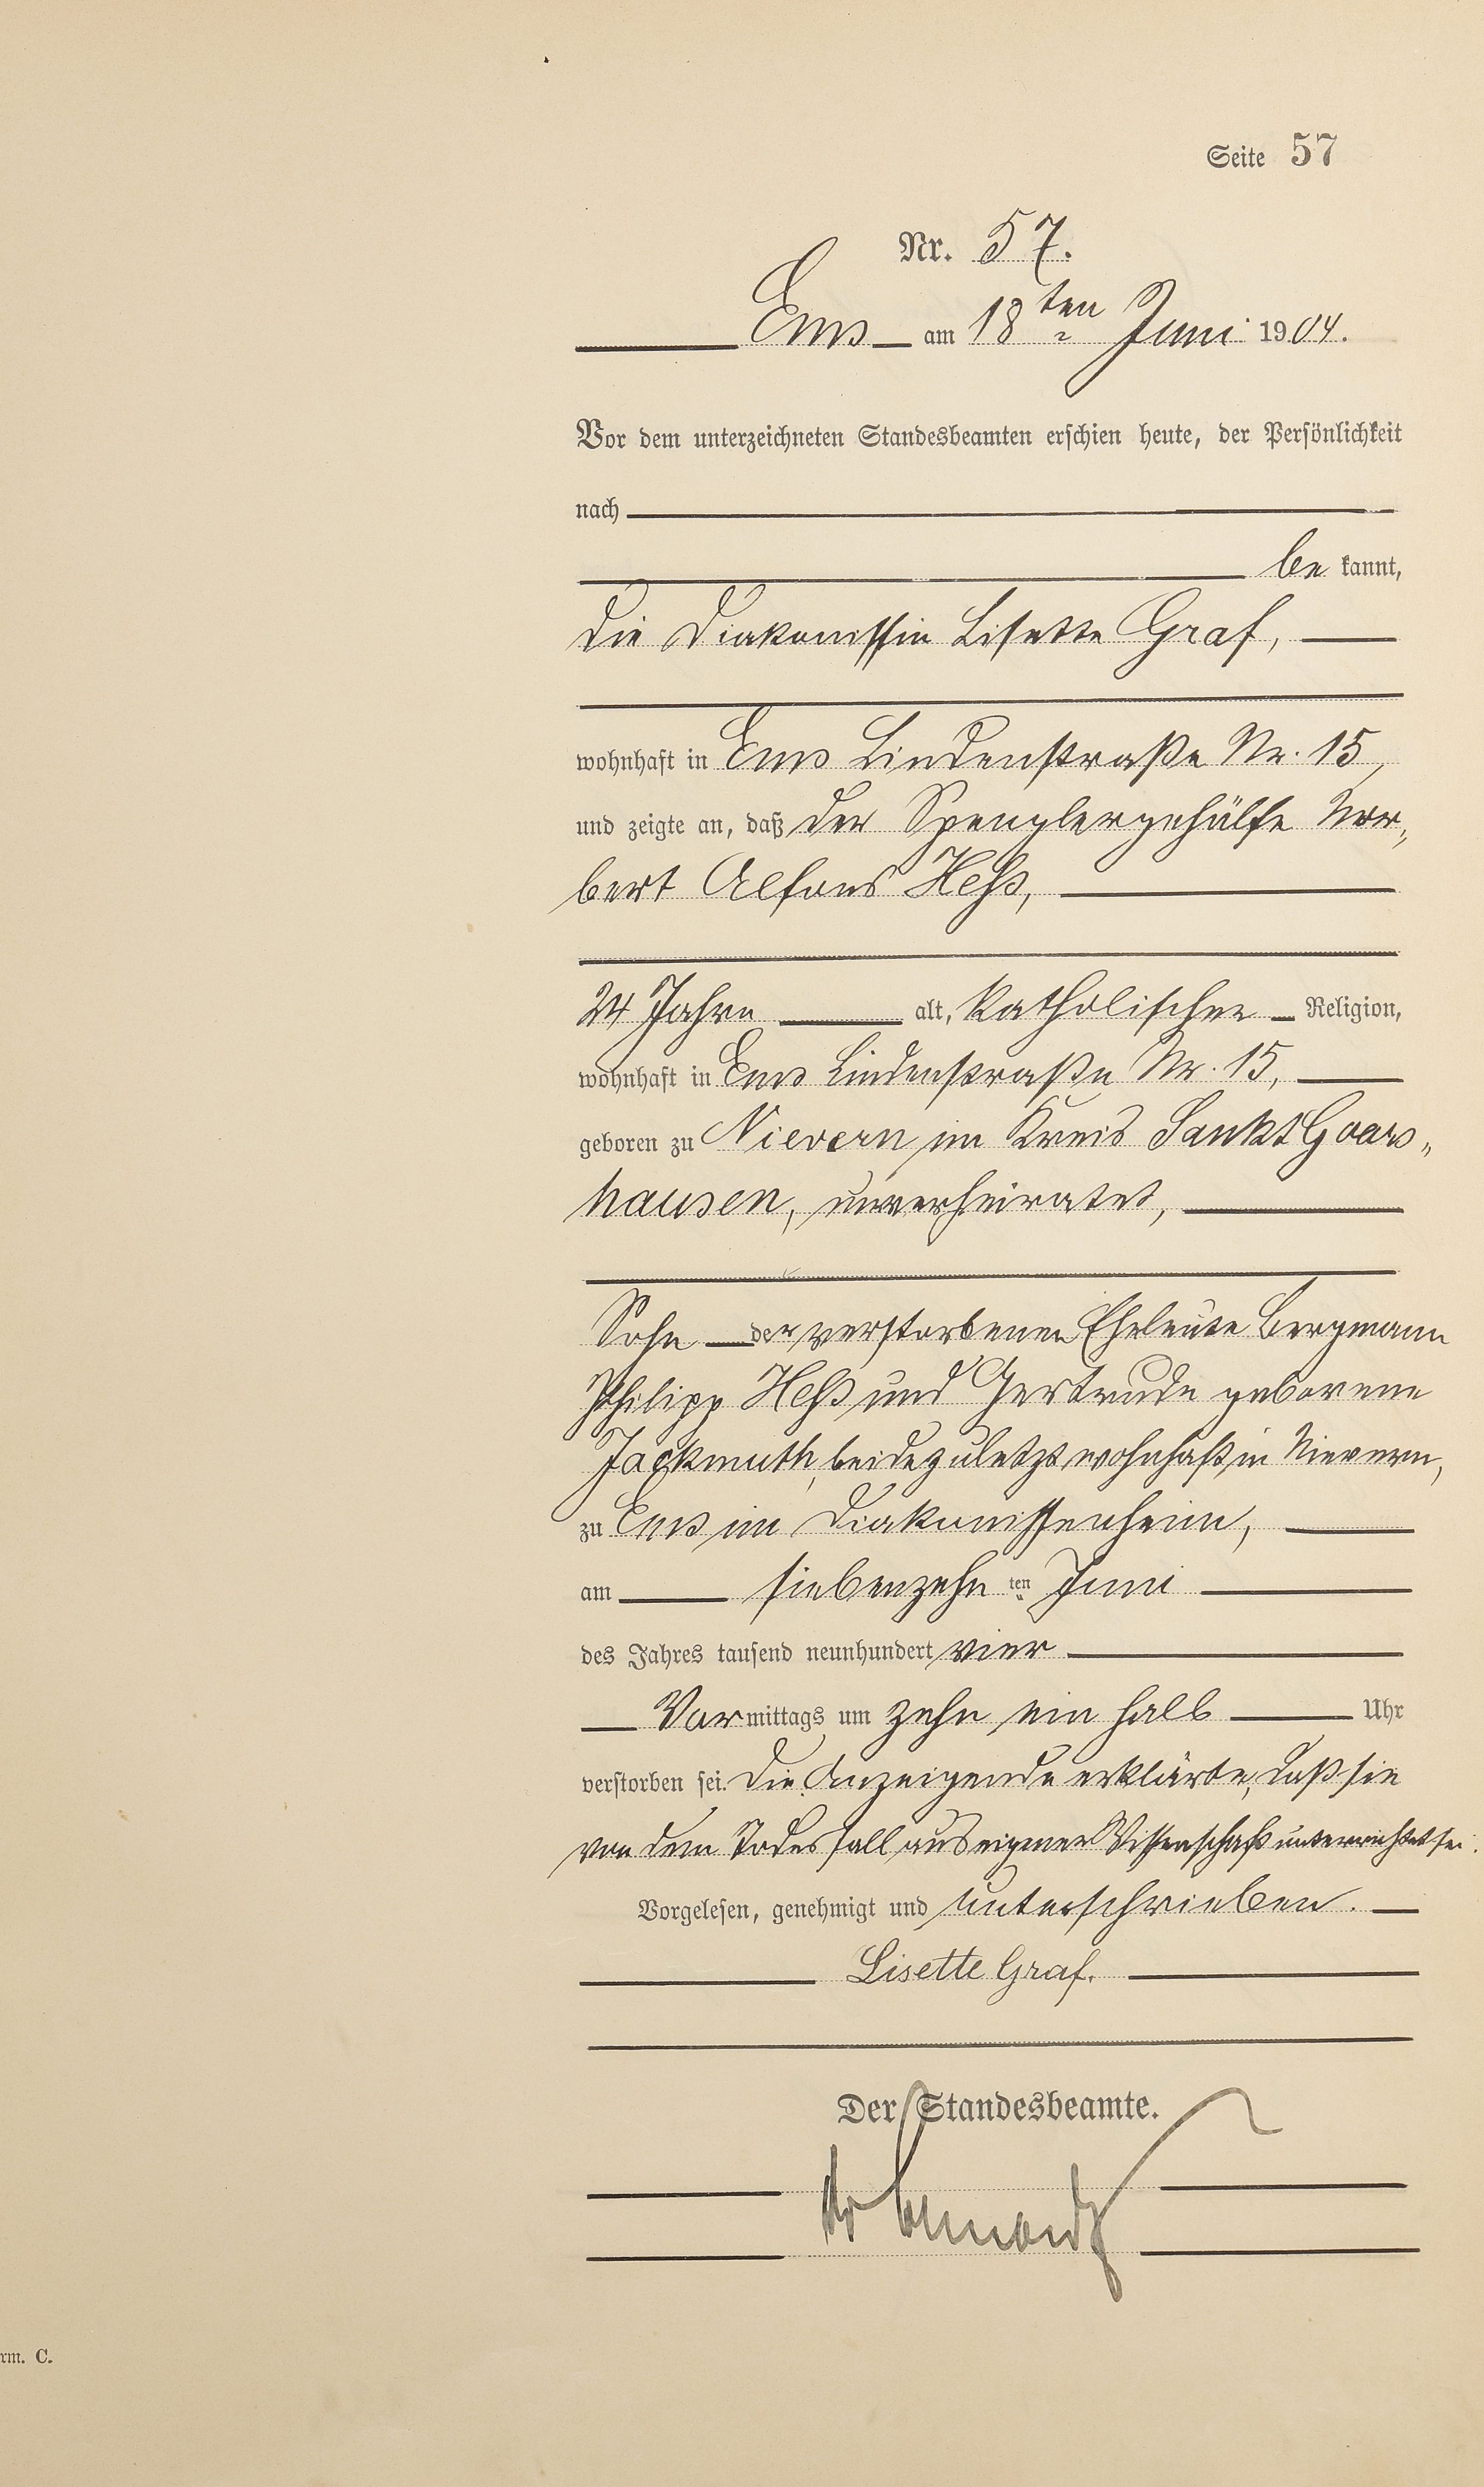 Seite 57
Nr. 57.
Ems am 18ten Juni 1904.
Vor dem unterzeichneten Standesbeamten erschien heute, der Persönlichkeit
nach
be kannt,
die Diakonissin Lisette Graf,
wohnhaft in Ems Lindenstraße Nr. 15,
und zeigte an, daß der Spenglergehülfe Nor„
bert Alfons Heß,
24 Jahre alt, katholischer Religion,
wohnhaft in Ems Lindenstraße Nr. 15,
geboren zu Nievern im Kreis Sankt Goars„
hausen, unverheiratet,
Sohn der verstorbenen Eheleute Bergmann
Philipp Heß und Gertrude geborene
Jackmuth, beide zuletzt wohnhaft in Nievern,
zu Ems im Diakonissenheim,
am siebenzehn ten Juni
des Jahres tausend neunhundert vier
Vormittags um zehn ein halb Uhr
verstorben sei. Die Anzeigende erklärte, daß sie
von dem Todesfall aus eigener Wissenschaft unterrichtet sei.
Vorgelesen, genehmigt und unterschrieben.
Lisette Graf.
Der Standesbeamte.
rm. C.